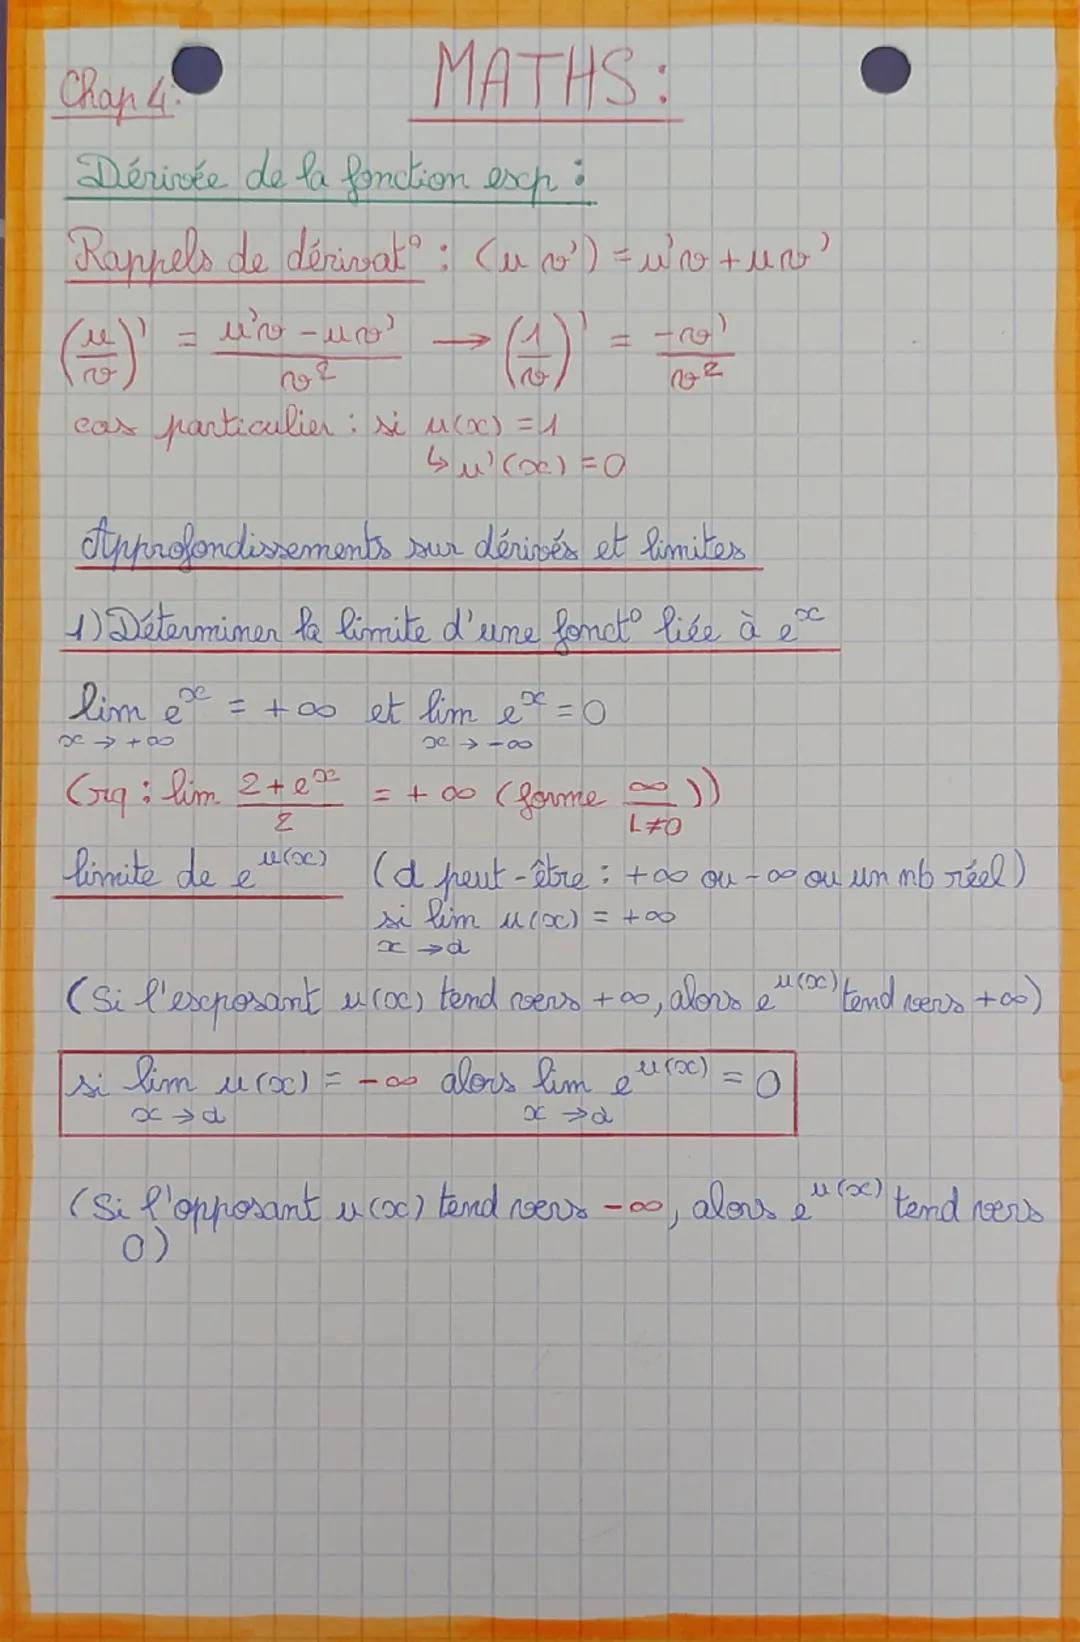 MATHS:
Chap 4:
Dérivée de la fonction exp :
Rappels de dérivat° : (u v') = u'v + uv'
(u/v)' = (u'v - uv')/v² → (1/v)' = -v'/v²
cas particulier : si u(x) = 1
↳ u'(x) = 0
Approfondissements sur dérivés et limites
1) Déterminer la limite d'une fonct° liée à e^x
lim e^x = +∞ et lim e^x = 0
x → +∞ x → -∞
(rq : lim (2+e^x)/2 = +∞ (forme ∞/L≠0))
limite de e^u(x) (d peut-être : +∞ ou -∞ ou un nb réel)
si lim u(x) = +∞
x → d
(Si l'exposant u(x) tend vers +∞, alors e^u(x) tend vers +∞)
si lim u(x) = -∞ alors lim e^u(x) = 0
x → d x → d
(Si l'opposant u(x) tend vers -∞, alors e^u(x) tend vers
0)